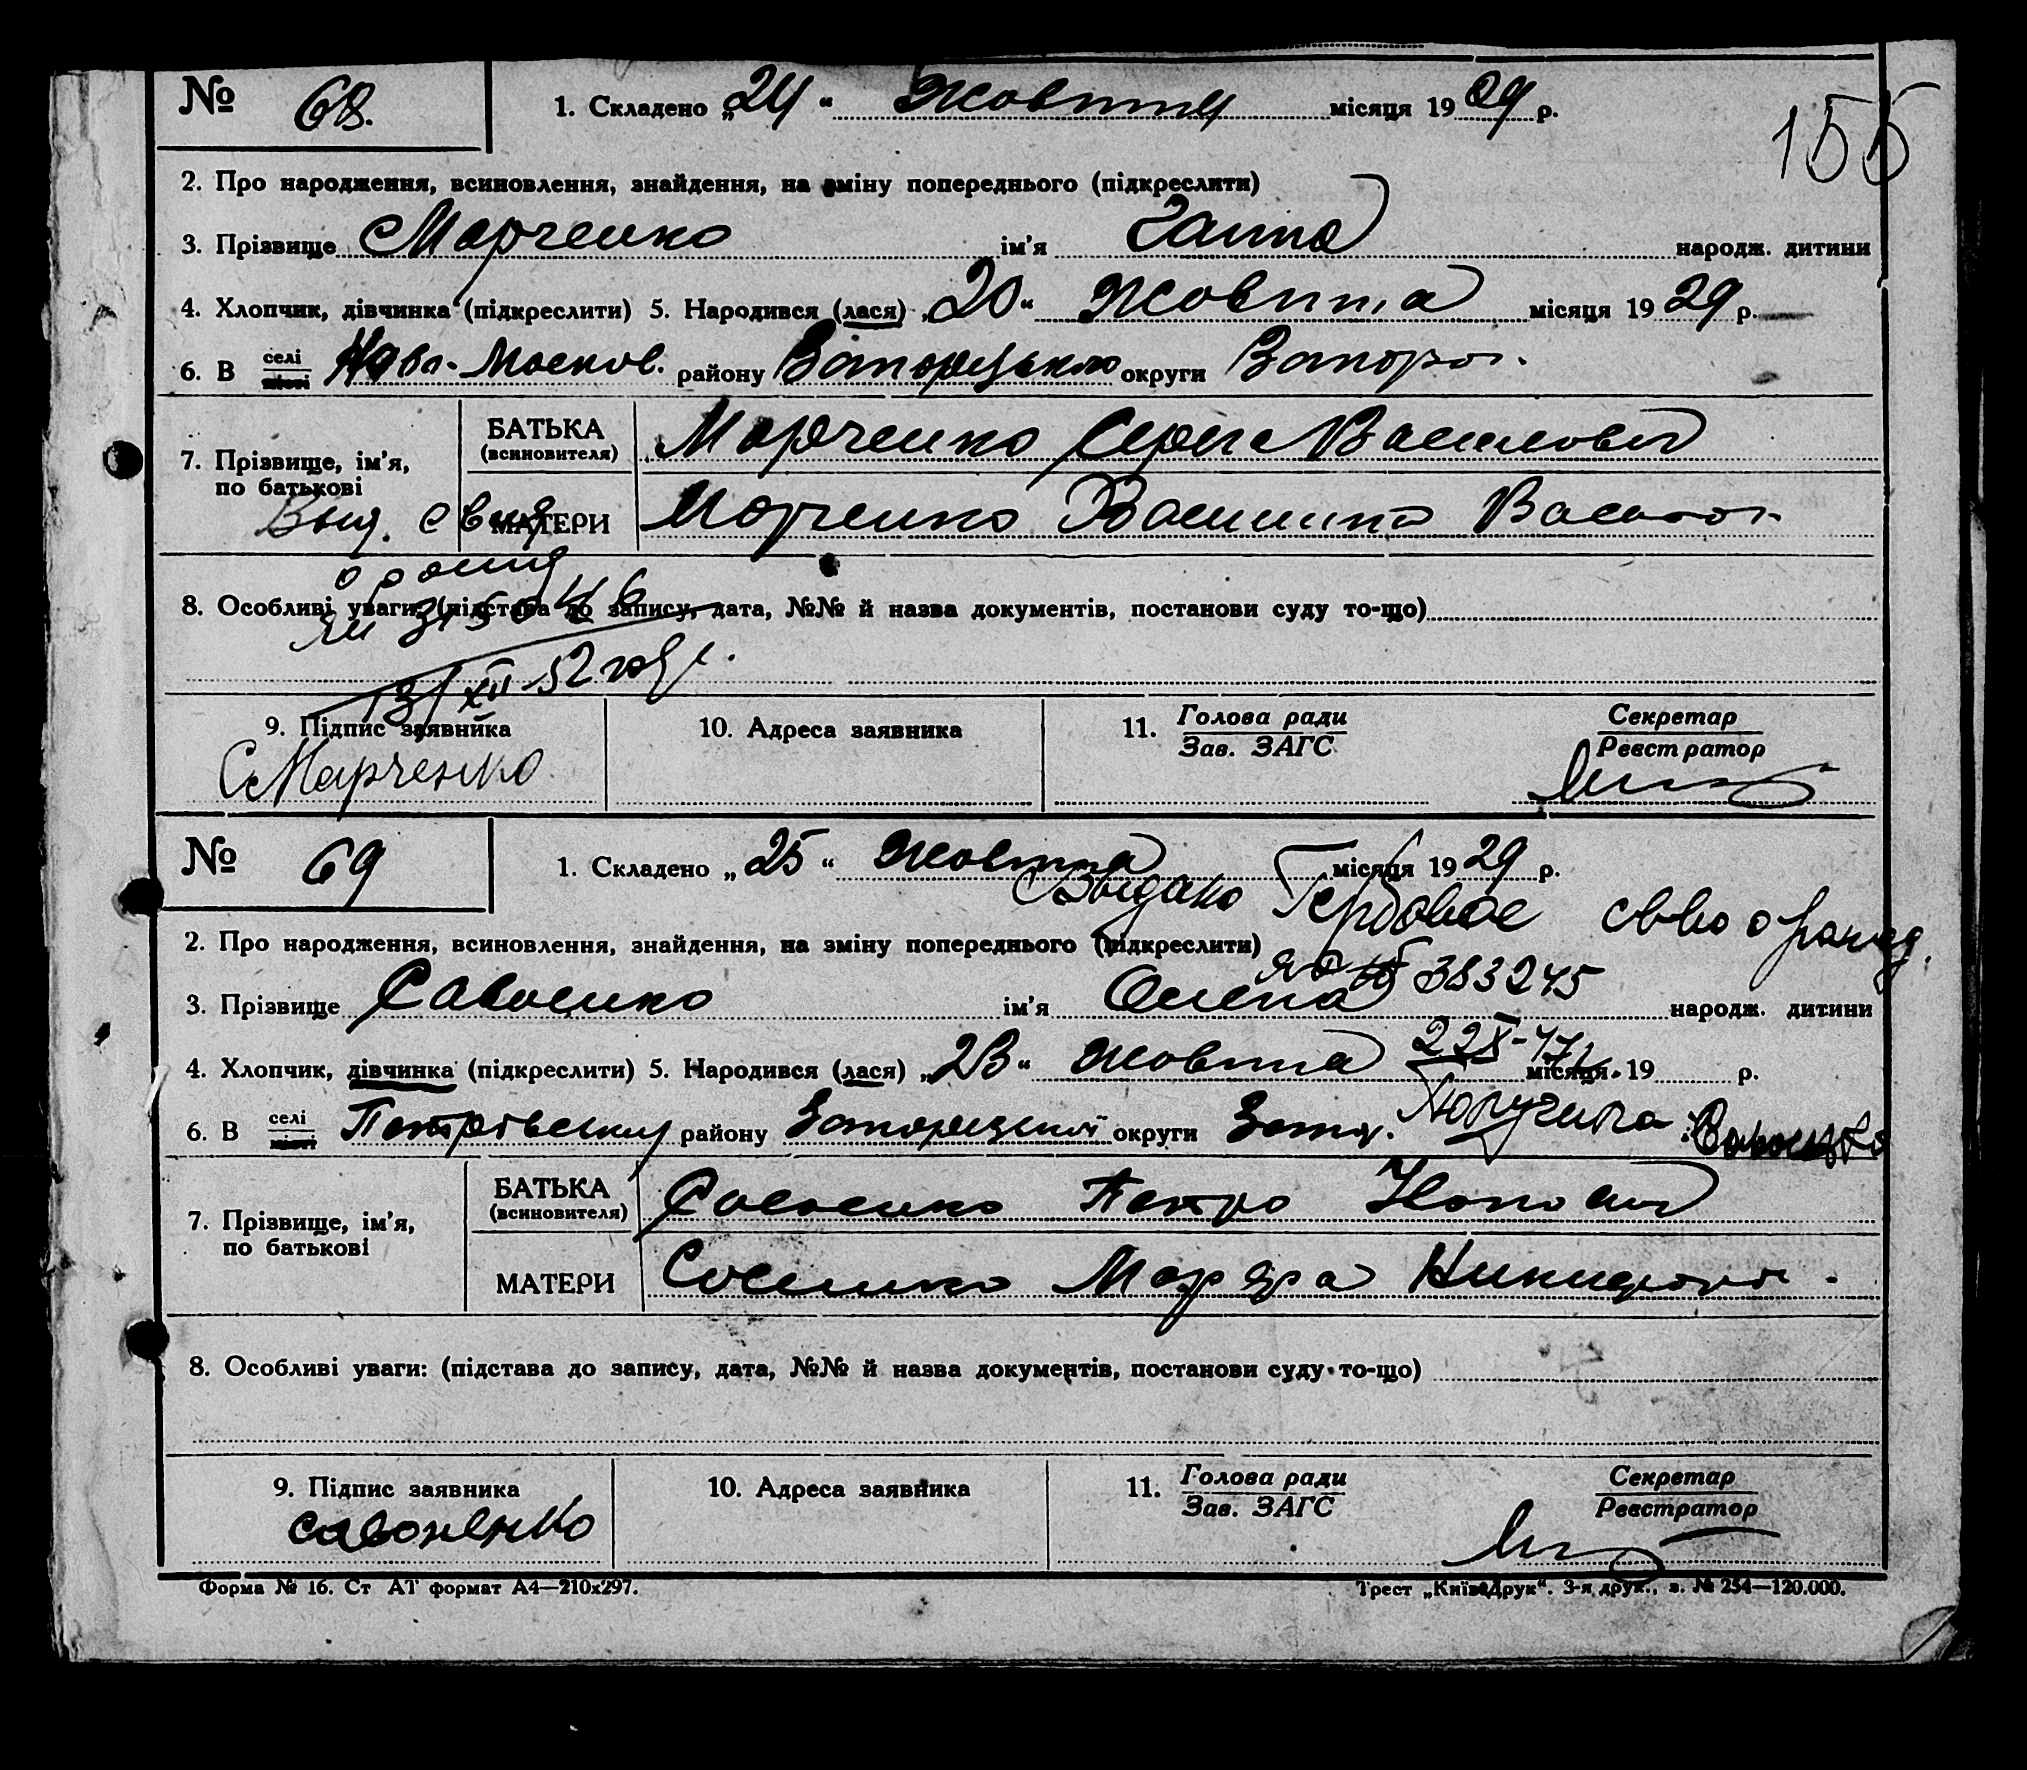 155
№ 68. 1. Складено „24“ жовтня місяця 1929 р.
2. Про народження, всиновлення, знайдення, на зміну попереднього (підкреслити)
3. Прізвище Марченко ім'я Ганна народж. дитини
4. Хлопчик, дівчинка (підкреслити) 5. Народився (лася) „20“ жовтня місяця 1929 р.
6. В селі місті Ново-Москов. району Запорізького округи Запоріз.
7. Прізвище, ім'я, по батькові БАТЬКА (всиновителя) Марченко Сергій Васильович
МАТЕРИ Марченко Васил
Выд. свид
о рожд
8. Особливі уваги: (підстава до запису, дата, №№ й назва документів, постанови суду то-що)
31/XII 52
9. Підпис заявника 10. Адреса заявника 11. Голова ради Зав. ЗАГС Секретар Реєстратор
С Марченко
№ 69 1. Складено „25“ жовтня місяця 1929 р.
Выдано Гербовое св-во о рожд.
2. Про народження, всиновлення, знайдення, на зміну попереднього (підкреслити)
383245
3. Прізвище Савоненко ім'я Олена народж. дитини
22X-47
4. Хлопчик, дівчинка (підкреслити) 5. Народився (лася) „23“ жовтня місяця 19 р.
6. В селі місті району Запорізької округи Запор.
7. Прізвище, ім'я, по батькові БАТЬКА (всиновителя) Савоненко Петро
МАТЕРИ Марфа
8. Особливі уваги: (підстава до запису, дата, №№ й назва документів, постанови суду то-що)
9. Підпис заявника 10. Адреса заявника 11. Голова ради Зав. ЗАГС Секретар Реєстратор
Савоненко
Форма № 16. Ст АТ формат А4—210x297. Трест „Київ-Друк“. 3-я друк., з. № 254—120.000.